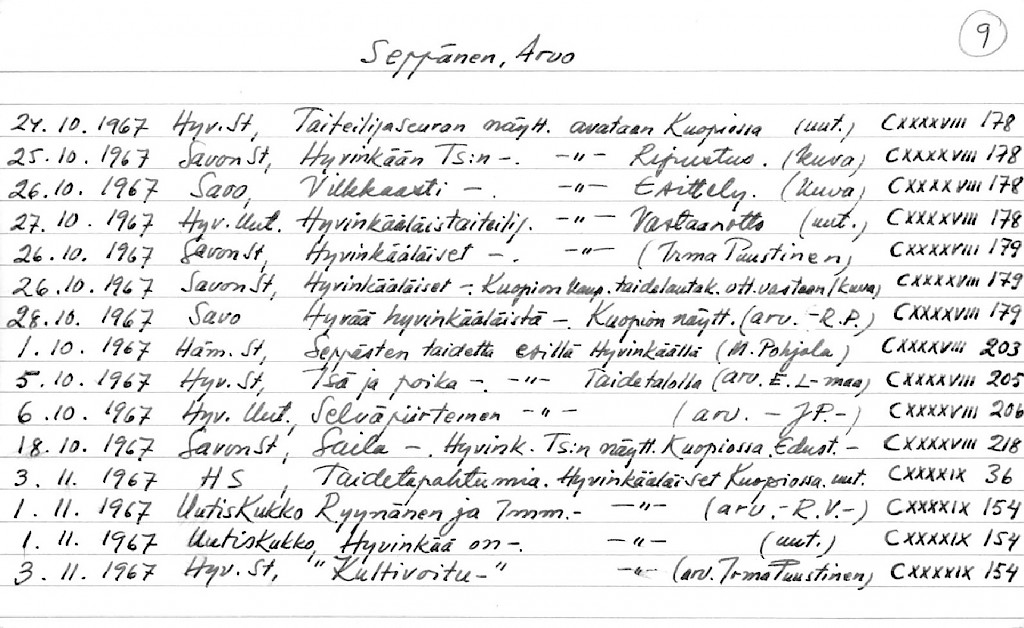 9
Seppänen, Arvo
24.10.1967 Hyv.St, Taiteilijaseuran näytt. avataan Kuopiossa (uut.) CXXXXVIII 178
25.10.1967 SavonSt, Hyvinkään Ts:n -. -"- Ripustus. (kuva) CXXXXVIII 178
26.10.1967 Savo, Vilkkaasti -. -"- Esittely. (kuva) CXXXXVIII 178
27.10.1967 Hyv.Uut. Hyvinkääläistaiteilij. -"- Vastaanotto (uut.) CXXXXVIII 178
26.10.1967 SavonSt, Hyvinkääläiset -. -"- (Irma Puustinen) CXXXXVIII 179
26.10.1967 SavonSt, Hyvinkääläiset -. Kuopion kaup. taidelautak. ott. vastaan (kuva) CXXXXVIII 179
28.10.1967 Savo Hyvää hyvinkääläistä -. Kuopion näytt. (arv. -R.P.) CXXXXVIII 179
1.10.1967 Häm.St, Seppästen taidetta esillä Hyvinkäällä (M. Pohjola) CXXXXVIII 203
5.10.1967 Hyv.St, Isä ja poika -. -"- Taidetalolla (arv. E.L-maa) CXXXXVIII 205
6.10.1967 Hyv. Uut, Selväpiirteinen -"- (arv. - JP.-) CXXXXVIII 206
18.10.1967 SavonSt, Saila -. Hyvink. Ts:n näytt. Kuopiossa. Edust. - CXXXXVIII 218
3.11.1967 HS, Taidetapahtumia. Hyvinkääläiset Kuopiossa. uut. CXXXXIX 36
1.11.1967 UutisKukko Ryynänen ja 7mm.- -"- (arv.-R.V.-) CXXXXIX 154
1.11.1967 UutisKukko, Hyvinkää on -. -"- (uut.) CXXXXIX 154
3.11.1967 Hyv.St, "Kultivoitu-" -"- (arv. Irma Puustinen) CXXXXIX 154